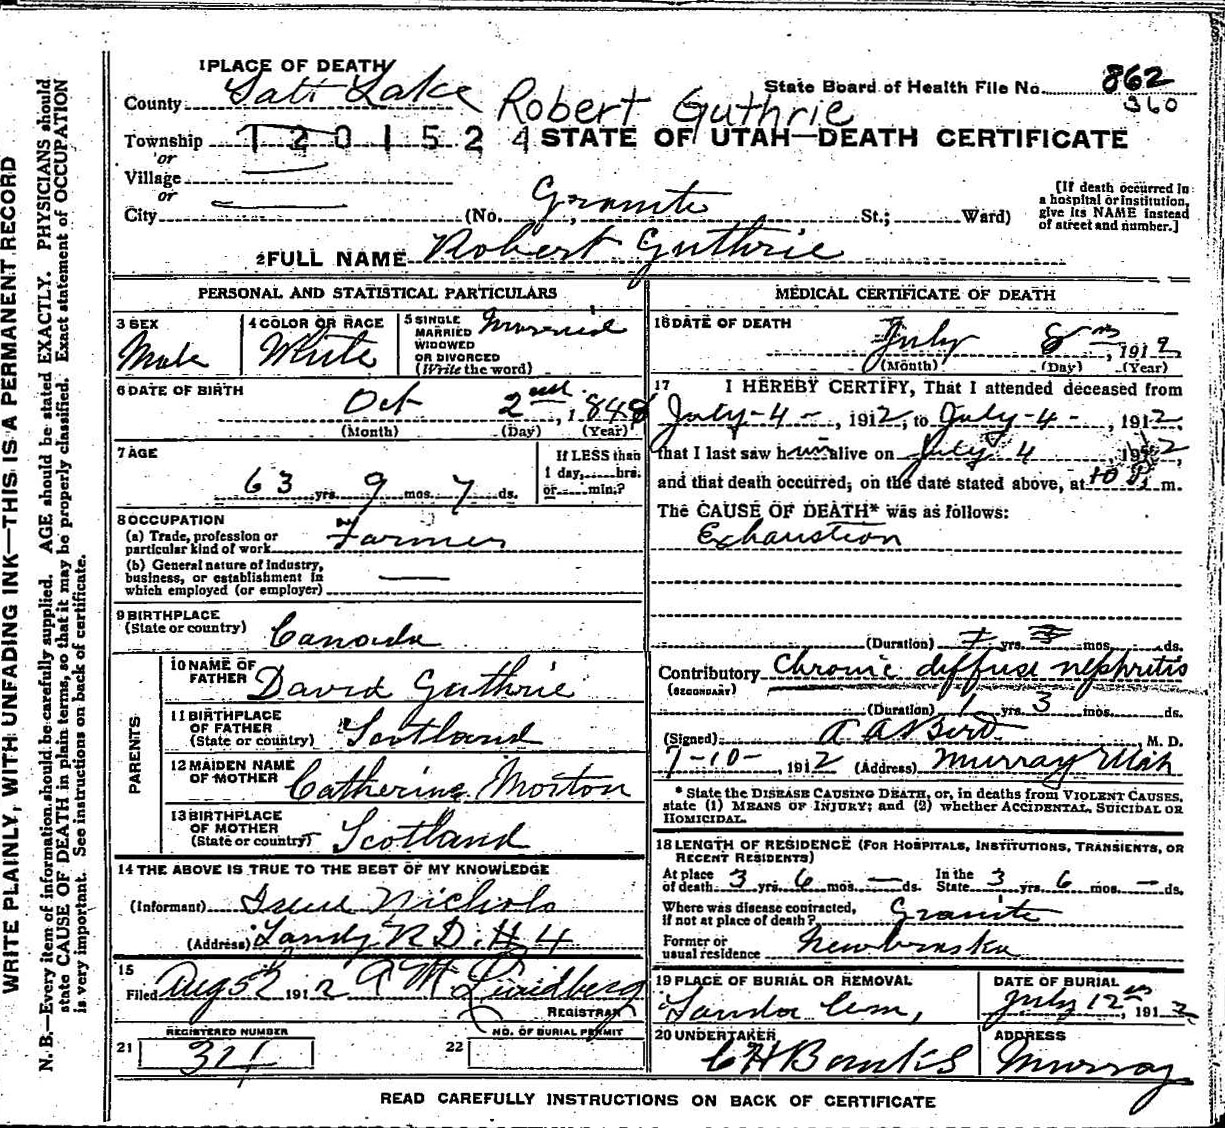 1 PLACE OF DEATH
County Salt Lake
Robert Guthrie
State Board of Health File No. 862
360
Township 1201524 STATE OF UTAH—DEATH CERTIFICATE
or
Village
or
City (No. Granite St.; Ward)
[If death occurred in a hospital or institution, give its NAME instead of street and number.]
2 FULL NAME Robert Guthrie
WRITE PLAINLY, WITH UNFADING INK—THIS IS A PERMANENT RECORD
N. B.—Every item of information should be carefully supplied. AGE should be stated EXACTLY. PHYSICIANS should
state CAUSE OF DEATH in plain terms, so that it may be properly classified. Exact statement of OCCUPATION
is very important. See instructions on back of certificate.
PERSONAL AND STATISTICAL PARTICULARS
3 SEX
Male
4 COLOR OR RACE
White
5 SINGLE
MARRIED
WIDOWED
OR DIVORCED
(Write the word)
Married
6 DATE OF BIRTH
Oct 2, 1848
(Month) (Day) (Year)
7 AGE
63 yrs. 9 mos. 7 ds.
If LESS than
1 day, hrs.
or min.?
8 OCCUPATION
(a) Trade, profession or
particular kind of work Farmer
(b) General nature of Industry,
business, or establishment in
which employed (or employer)
9 BIRTHPLACE
(State or country) Canada
PARENTS
10 NAME OF
FATHER David Guthrie
11 BIRTHPLACE
OF FATHER
(State or country) Scotland
12 MAIDEN NAME
OF MOTHER Catherine Morton
13 BIRTHPLACE
OF MOTHER
(State or country) Scotland
14 THE ABOVE IS TRUE TO THE BEST OF MY KNOWLEDGE
(Informant) Nichols
(Address) Sandy R D # 4
15
Filed Aug 5, 1912 A M Lindberg
REGISTRAR
REGISTERED NUMBER
21 321
NO. OF BURIAL PERMIT
22
MEDICAL CERTIFICATE OF DEATH
16 DATE OF DEATH
July 8, 1912
(Month) (Day) (Year)
17 I HEREBY CERTIFY, That I attended deceased from
July-4-, 1912, to July-4-, 1912,
that I last saw him alive on July 4, 1912,
and that death occurred, on the date stated above, at 10 P. m.
The CAUSE OF DEATH* was as follows:
Exhaustion
(Duration) yrs. mos. ds.
Contributory Chronic diffuse nephritis
(SECONDARY)
(Duration) 1 yrs. 3 mos. ds.
(Signed) A A Bird M. D.
7-10-, 1912 (Address) Murray Utah
* State the DISEASE CAUSING DEATH, or, in deaths from VIOLENT CAUSES,
state (1) MEANS OF INJURY; and (2) whether ACCIDENTAL, SUICIDAL OR
HOMICIDAL.
18 LENGTH OF RESIDENCE (FOR HOSPITALS, INSTITUTIONS, TRANSIENTS, OR
RECENT RESIDENTS)
At place
of death 3 yrs. 6 mos. — ds. In the
State 3 yrs. 6 mos. — ds.
Where was disease contracted,
if not at place of death? Granite
Former or
usual residence
19 PLACE OF BURIAL OR REMOVAL
Cem,
DATE OF BURIAL
July 12, 1912
20 UNDERTAKER
C H Banks
ADDRESS
Murray
READ CAREFULLY INSTRUCTIONS ON BACK OF CERTIFICATE